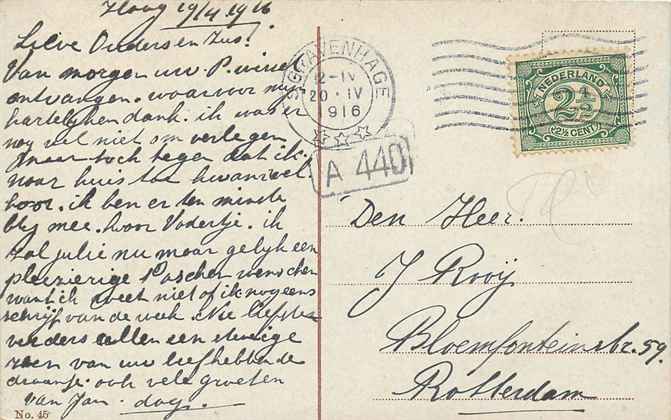 Haag 19/4 1916
Lieve Ouders en Zus!
Van morgen uw P.
ontvangen. waarvoor mijn
hartelijken dank. ik was er
nog wel niet om verlegen
maar toch tegen dat ik
naar huis toe
hoor. ik ben er ten minste
blij mee. hoor Vadertje. ik
zal julie nu maar gelijk een
pleizierige Paschen wenschen
want ik weet niet of ik nog eens
schrijf van de week. Nu liefste
ouders allen een stevige
zoen van uw liefhebbende
ook vele groeten
van Jan. dag.
No. 45
'S GRAVENHAGE
12-IV
20.IV
1916
A 440
NEDERLAND
2½
2½ CENT
Den Heer.
J Rooij
Bloemfonteinstr. 59.
Rotterdam